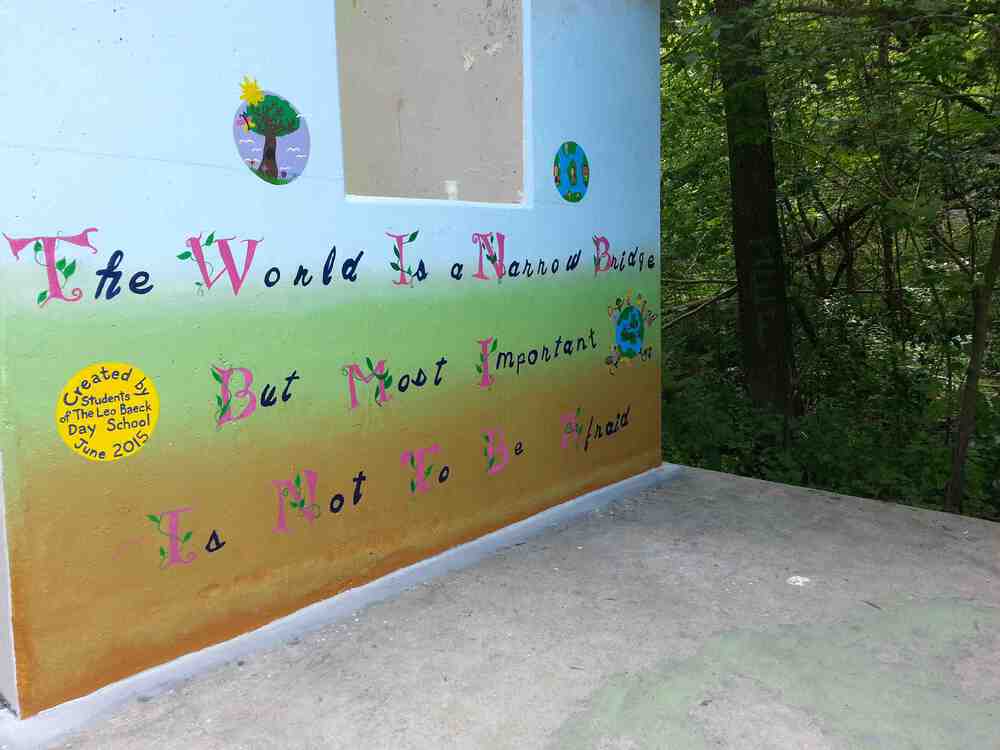 The World Is a Narrow Bridge
But Most Important
Is Not To Be Afraid
Created by
Students
of The Leo Baeck
Day School
June 2015